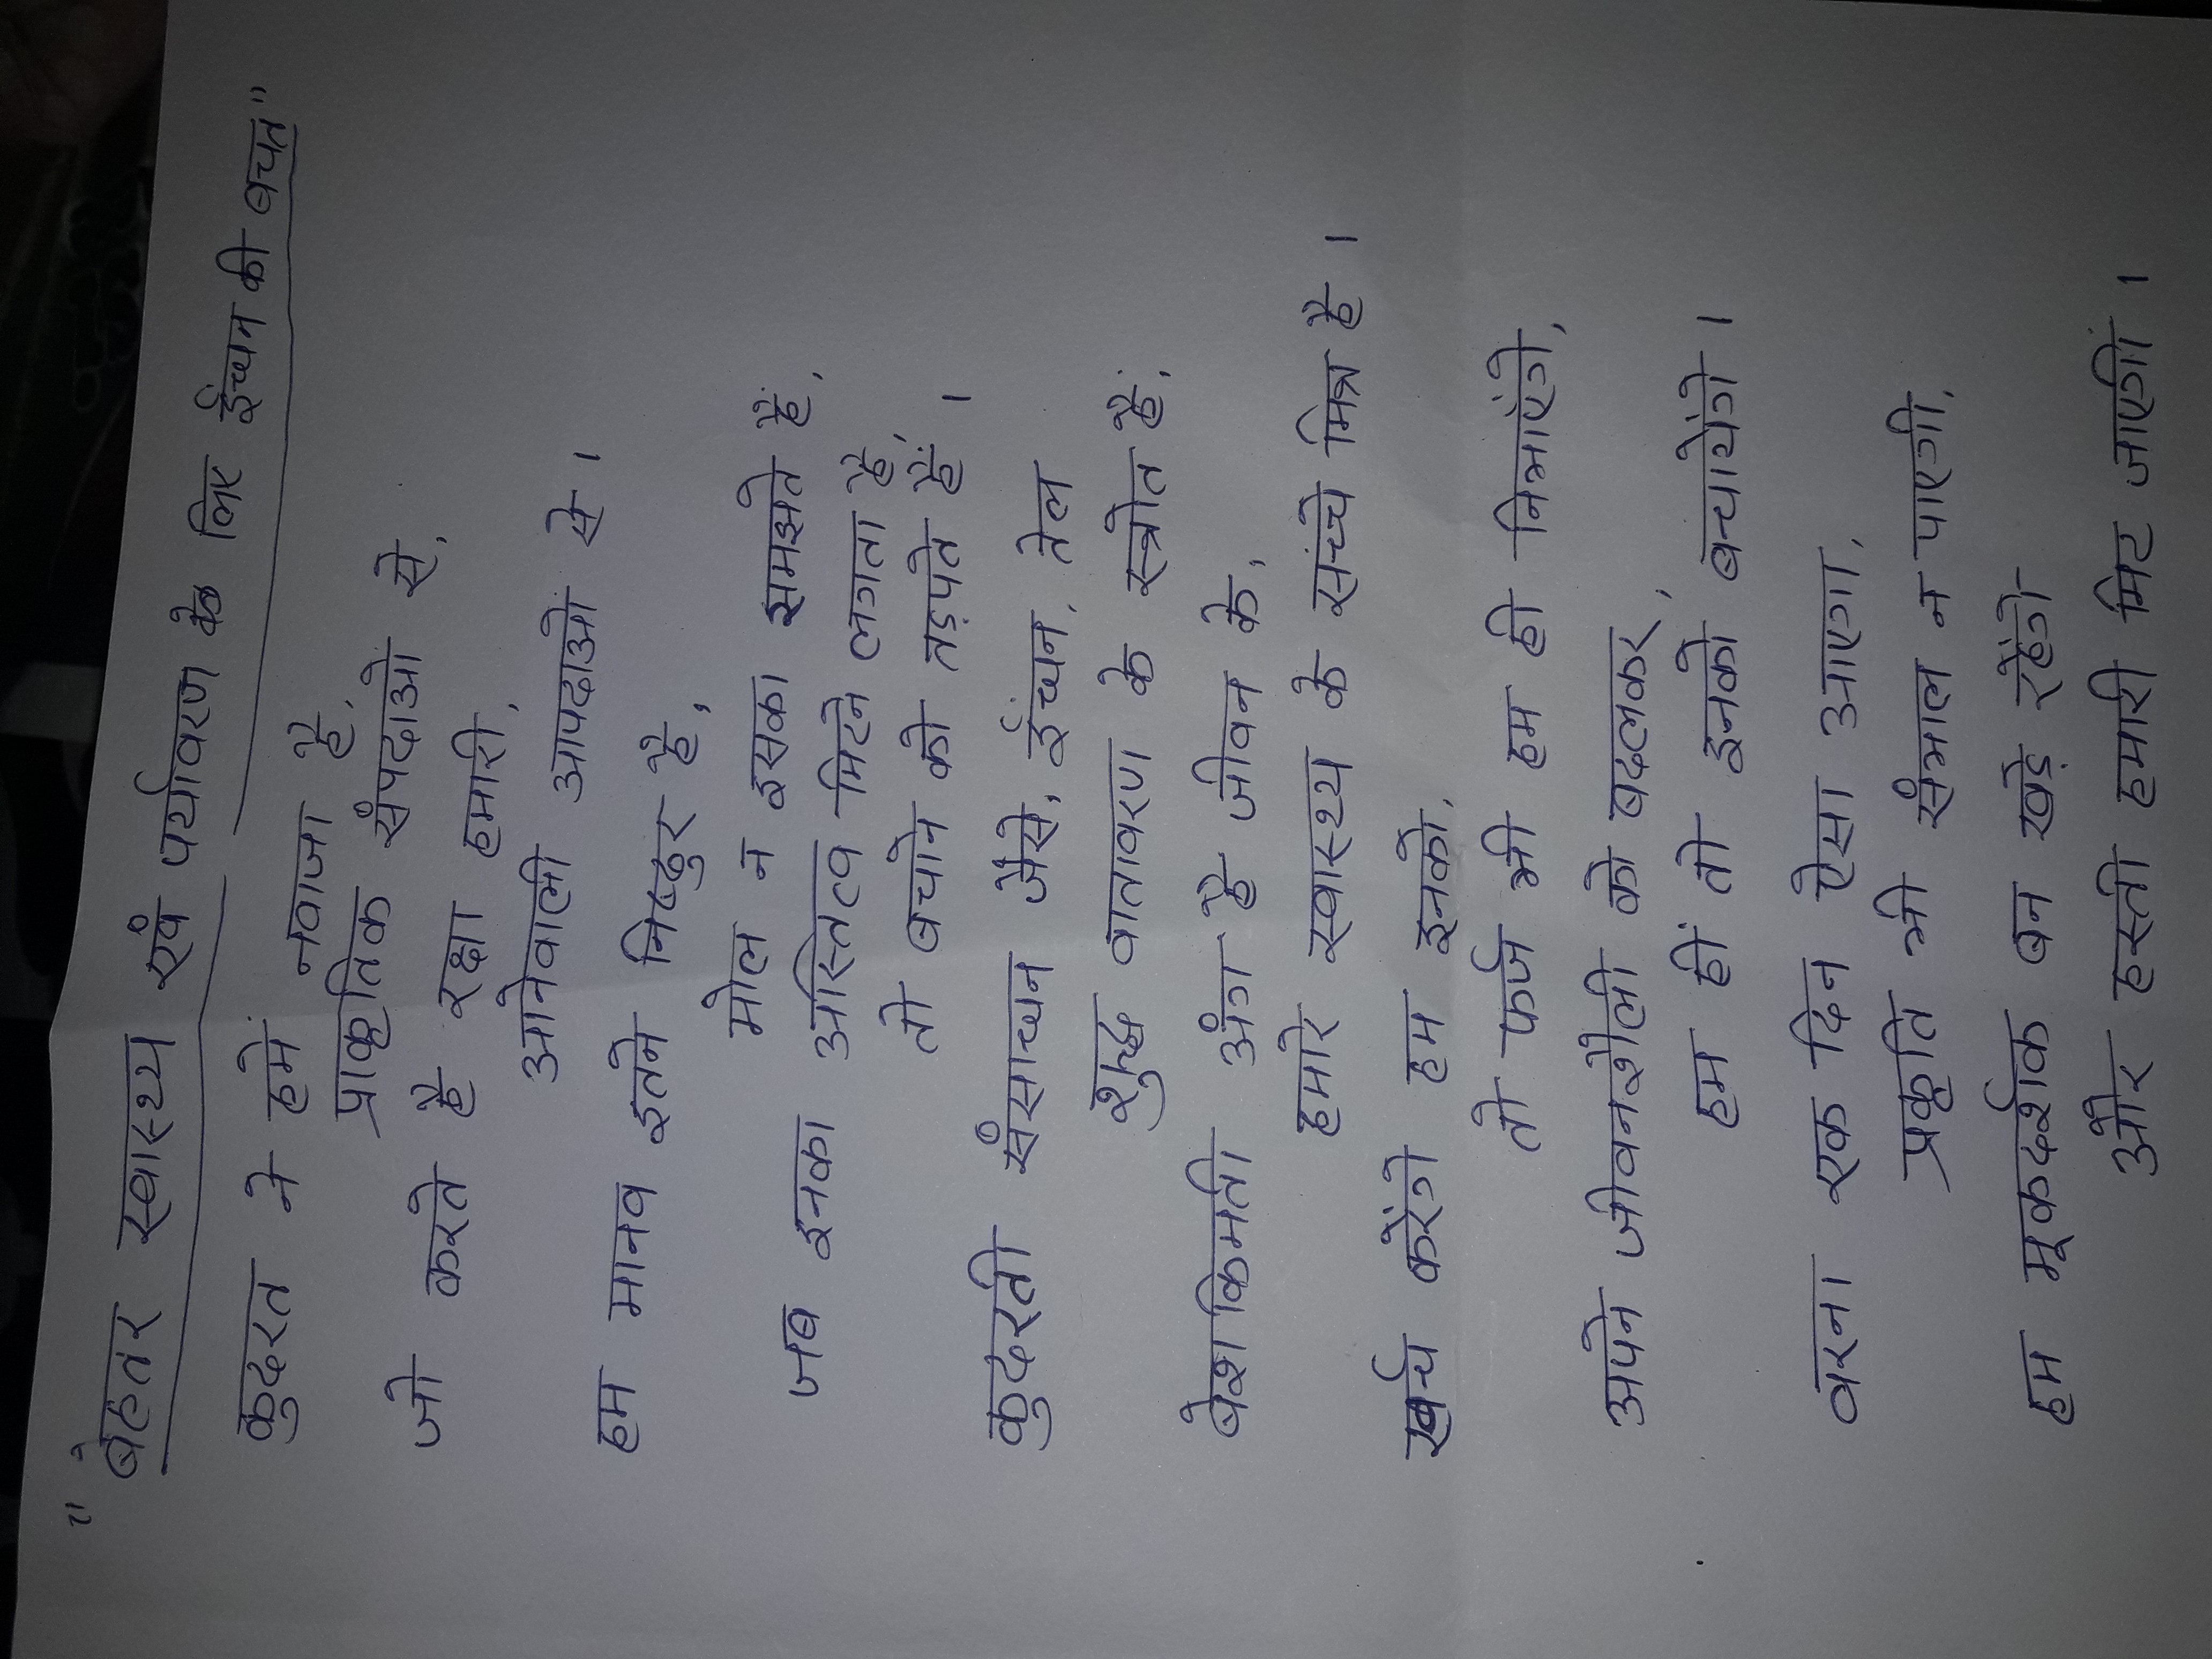 " बेहतर स्वास्थ्य एवं पर्यावरण के लिए ईंधन की बचत"
कुदरत ने हमें नवाजा है,
प्राकृतिक संपदाओं से,
जो करते है रक्षा हमारी,
आनेवाली आपदाओं से।
हम मानव इतने निष्ठुर है,
मोल न इसका समझते हैं,
जब इनका अस्तित्व मिटने लगता है,
तो बचाने को तड़पते हैं।
कुदरती संसाधन जैसे, ईंधन, तेल
शुद्ध वातावरण के स्त्रोत हैं,
बेशकिमती अंग है जीवन के,
हमारे स्वास्थ्य के सच्चे मित्र है।
खर्च करेंगे हम इनको,
तो फर्ज भी हम ही निभाएंगे,
अपने जीवनशैली को बदलकर,
हम हीं तो इनको बचायेंगे।
वरना एक दिन ऐसा आएगा,
प्रकृति भी संभाल न पाएगी,
हम मूकदर्शक बन खड़े रहेंगे
और हस्ती हमारी मिट जाएगी।